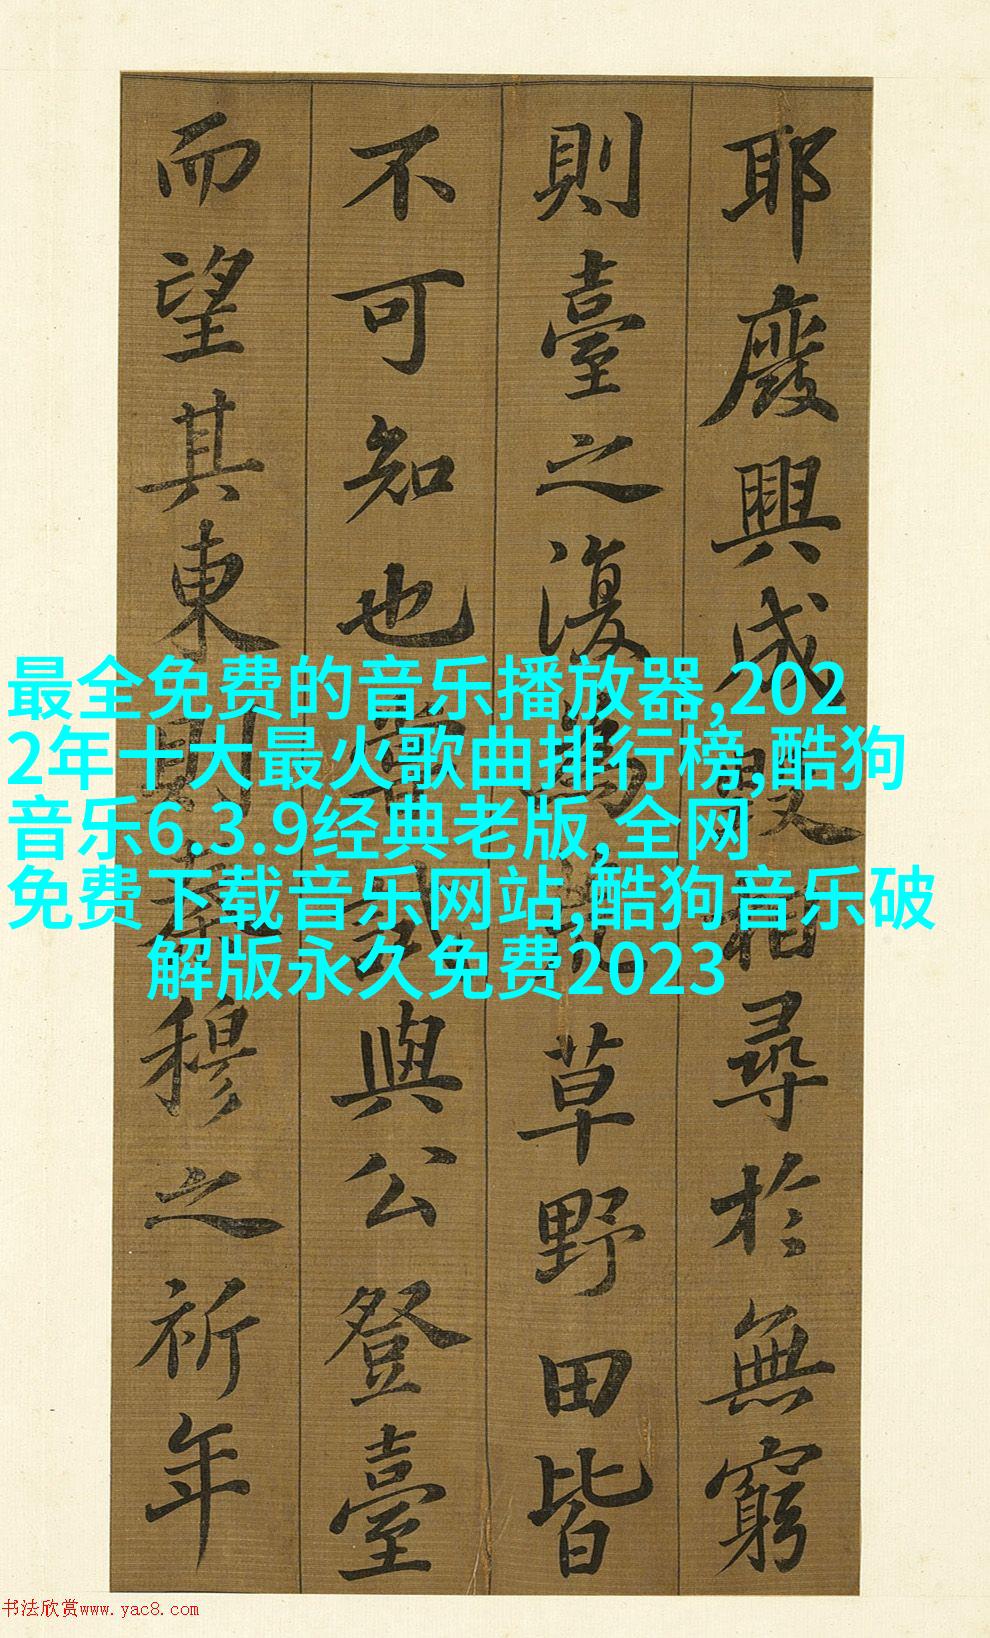 耶廢興成毀相尋於無窮
則臺之復為荒草野田皆
不可知也嘗試與公登臺
而望其東則秦穆之祈年
最全免费的音乐播放器,202
2年十大最火歌曲排行榜,酷狗
音乐6.3.9经典老版,全网
免费下载音乐网站,酷狗音乐破
解版永久免费2023
书法欣赏www.yac8.com